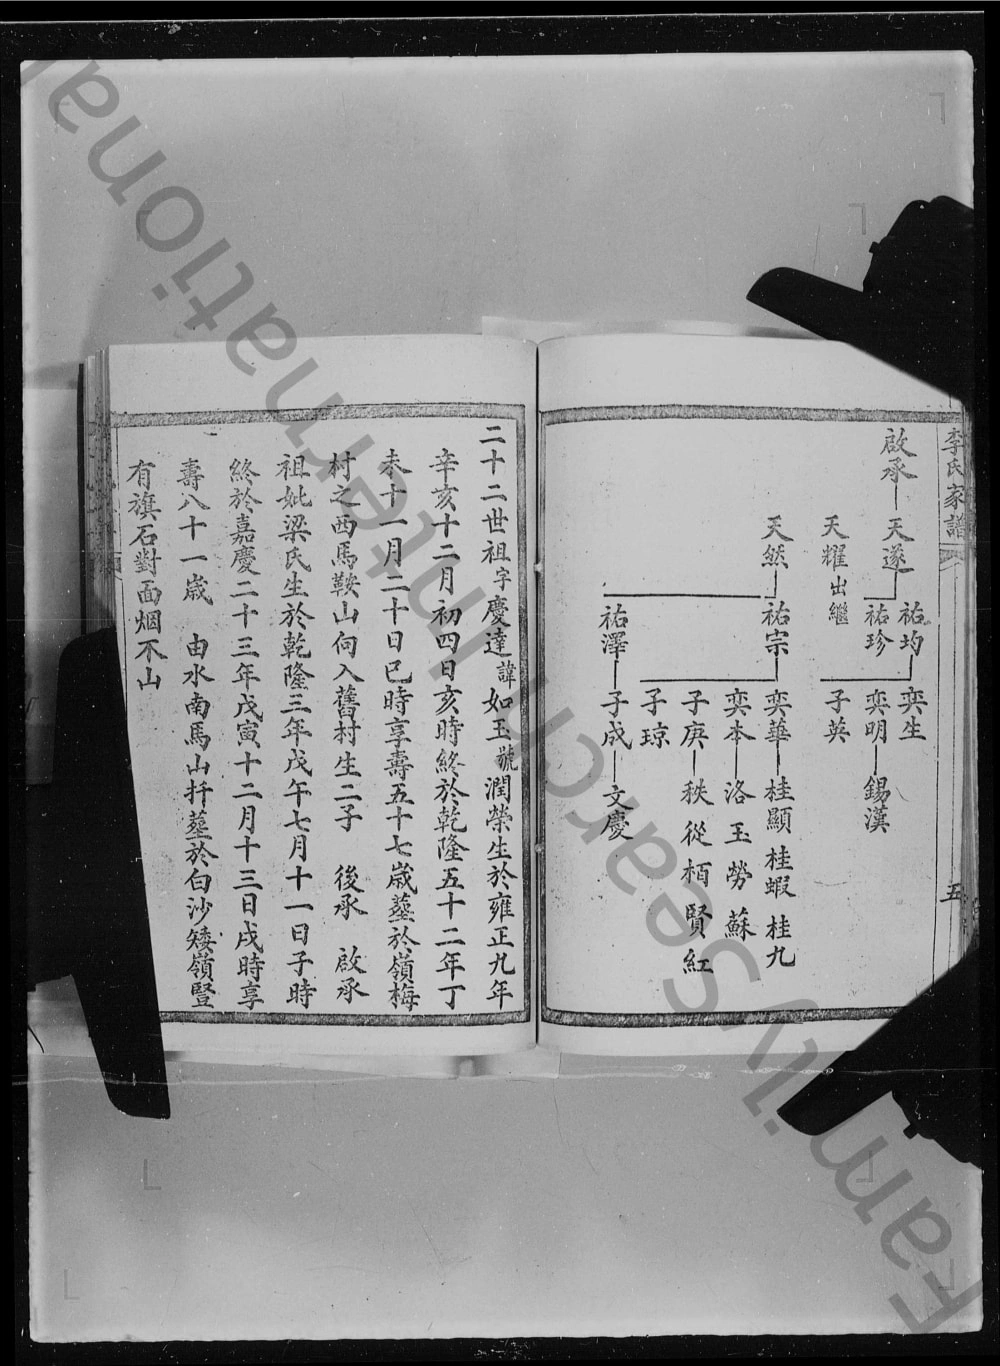 李氏家譜
五
啟承 天遂 祐均 奕生
祐珍 奕明 錫漢
子英
天耀出繼
天然 祐宗 奕華 桂顯 桂蝦 桂九
奕本 洛 玉 勞 蘇
子庚 秩 從 栢 賢 紅
子琼
祐澤 子成 文慶
二十二世祖字慶達諱如玉號潤榮生於雍正九年
辛亥十二月初四日亥時終於乾隆五十二年丁
未十一月二十日巳時享壽五十七歲塟於嶺梅
村之西馬鞍山向入舊村生二子 後承 啟承
祖妣梁氏生於乾隆三年戊午七月十一日子時
終於嘉慶二十三年戊寅十二月十三日戌時享
壽八十一歲 由水南馬山扦塟於白沙矮嶺豎
有旗石對面烟不山
FamilySearch International